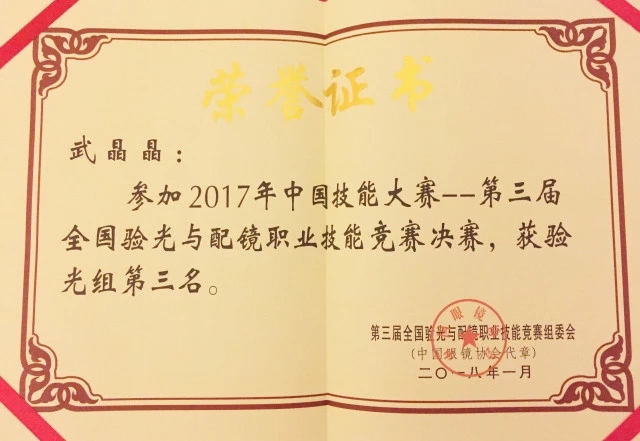 荣誉证书
武晶晶：
参加2017年中国技能大赛--第三届
全国验光与配镜职业技能竞赛决赛，获验
光组第三名。
第三届全国验光与配镜职业技能竞赛组委会
(中国眼镜协会代章)
二〇一八年一月